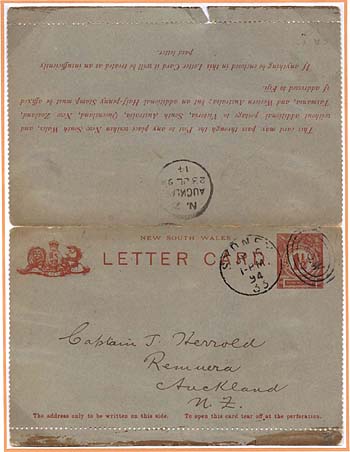 This card may pass through the Post to any place within New South Wales, and
without additional postage to Victoria, South Australia, Queensland, New Zealand,
Tasmania, and Western Australia; but an additional Half-penny Stamp must be affixed
if addressed to Fiji.
If anything be enclosed in this Letter Card it will be treated as an insufficiently
paid letter.
N.Z
AUCKLA
23 JL 9
14
NEW SOUTH WALES
LETTER CARD
SYDNEY
1-PM.
94
33
Captain J. Herrold
Remuera
Auckland
N.Z.
The address only to be written on this side. To open this card tear off at the perforation.